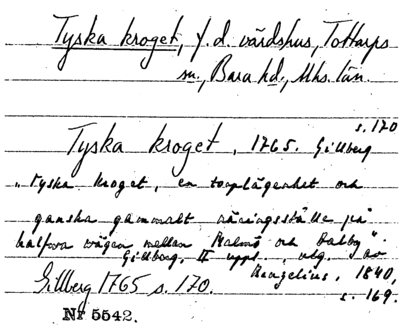 Tyska kroget, f.d. värdshus, Tottarps
sn., Bara hd., Mhs. län.
s. 170
Tyska kroget, 1765. Gillberg
"Tyska Kroget, en torplägenhet och
ganska gammalt näringsställe på
halfva vägen mellan Malmö och Dalby".
Gillberg, II uppl., utg. av
Brngelius, 1840,
s. 169.
Gillberg 1765 s. 170.
Nr 5542.